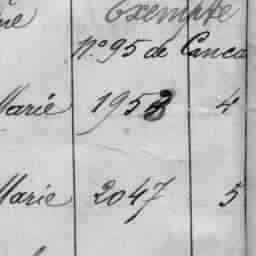 Exempte
n.º 95 de Canca
Marie 1953 4
Marie 2047 5